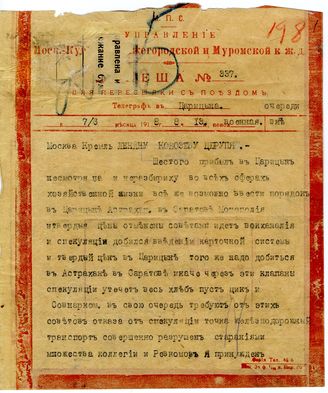 П. С.
198
УПРАВЛЕНІЕ
Мос Кур жегородской и Муромской ж. д.
ЕША № 337.
ДЛЯ ПЕРЕСЫЛКИ СЪ ПОѢЗДОМЪ.
Телеграфъ въ Царицына очереди
7/3 мѣсяца 191 8. 8. 13. военная. внѣ
Москва Кремль ЛЕНИНУ КОБОЗЕВУ ЦЕРУПА.-
Шестого прибыл въ Царицын
несмотря на и неразбериху во всѣх сферах
хозяйственной жизни всё же возможно ввести порядокъ
въ Царицынѣ Астрахани, въ Саратовѣ Монополія
и твердыя цѣны отмѣнены совѣтами идет вакханалія
и спекуляціи добился введенія карточной системы
и твердый цѣн въ Царицынѣ того же надо добиться
въ Астрахани въ Саратовѣ иначе через эти клапаны
спекуляціи утечет весь хлѣбъ пусть цик и
Совнарком, въ свою очередь требуют от этихъ
совѣтов отказа от спекуляціи точка Железнодорожный
транспорт совершенно разрушен стараніями
множества коллегій и Ревкомов Я принужден